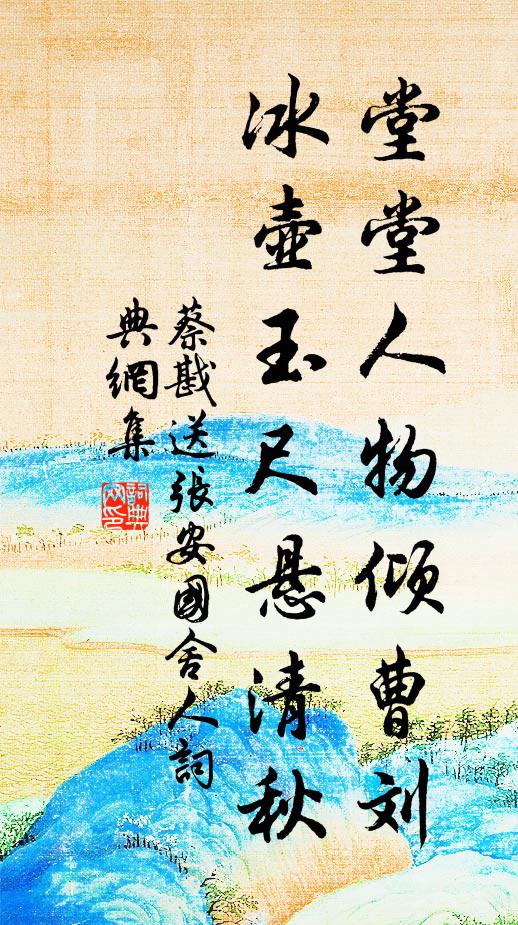 堂堂人物倾曹刘
冰壶玉尺悬清秋
蔡戡送張安國舍人詞
典網集
詞典
网印